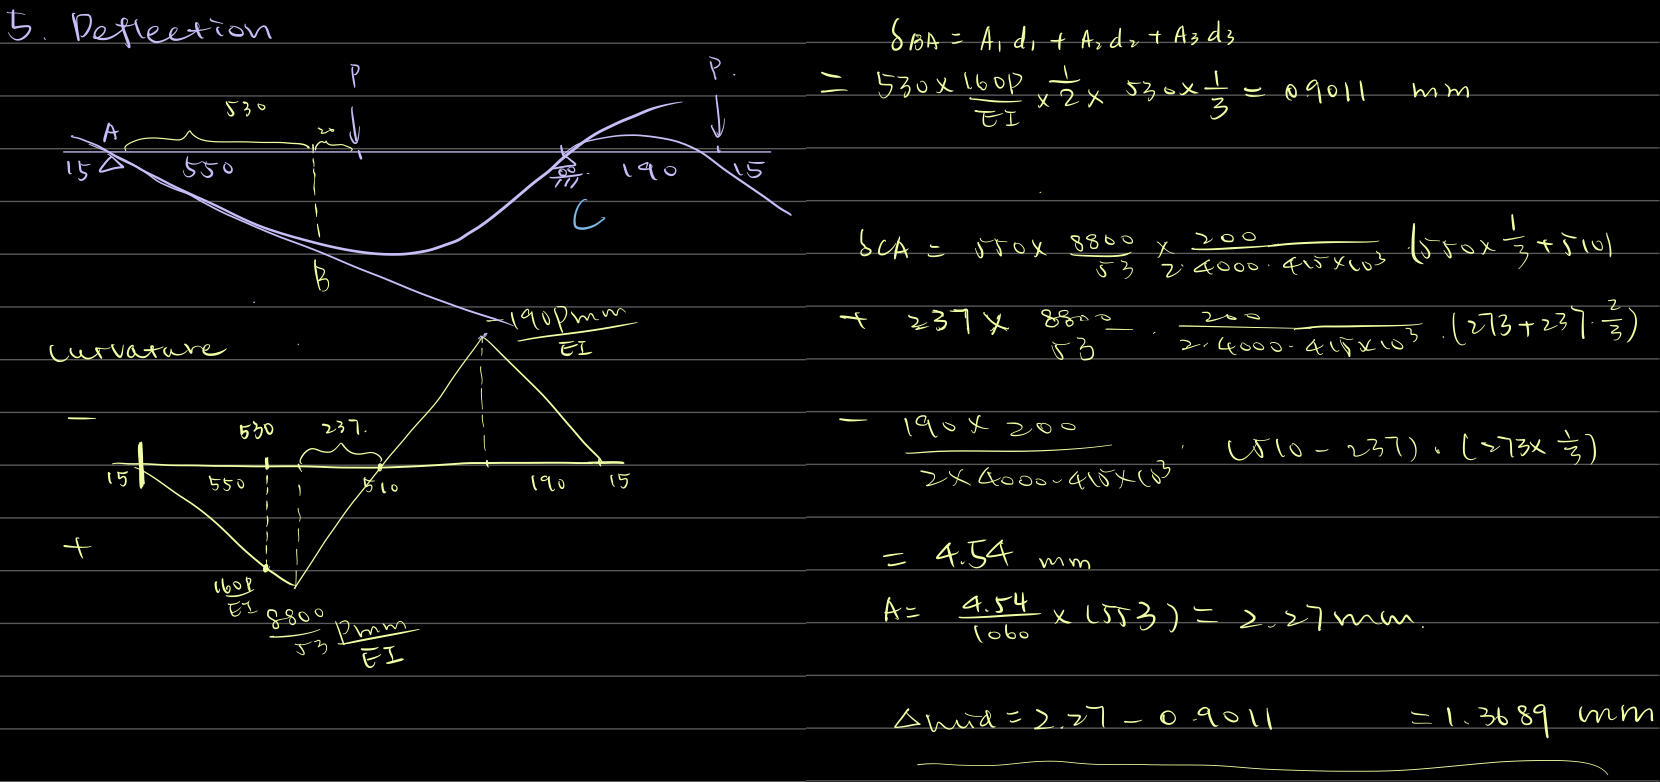 5. Deflection
P
P.
530
20
A
15
550
190
15
C
B
curvature
-190Pmm
EI
−
530
237.
15
550
510
190
15
+
160P
EI
8800
53
Pmm
EI
δBA = A1 d1 + A2 d2 + A3 d3
= 530 × 160P/EI × 1/2 × 530 × 1/3 = 0.9011 mm
δCA = 550 × 8800/53 × 200/2·4000·415×10³ (550 × 1/3 + 510)
+ 237 × 8800/53 · 200/2·4000·415×10³ · (273 + 237 · 2/3)
− 190 × 200/2×4000·415×10³ · (510 − 237) · (273 × 1/3)
= 4.54 mm
A = 4.54/1060 × (553) = 2.27 mm.
Δmid = 2.27 − 0.9011 = 1.3689 mm